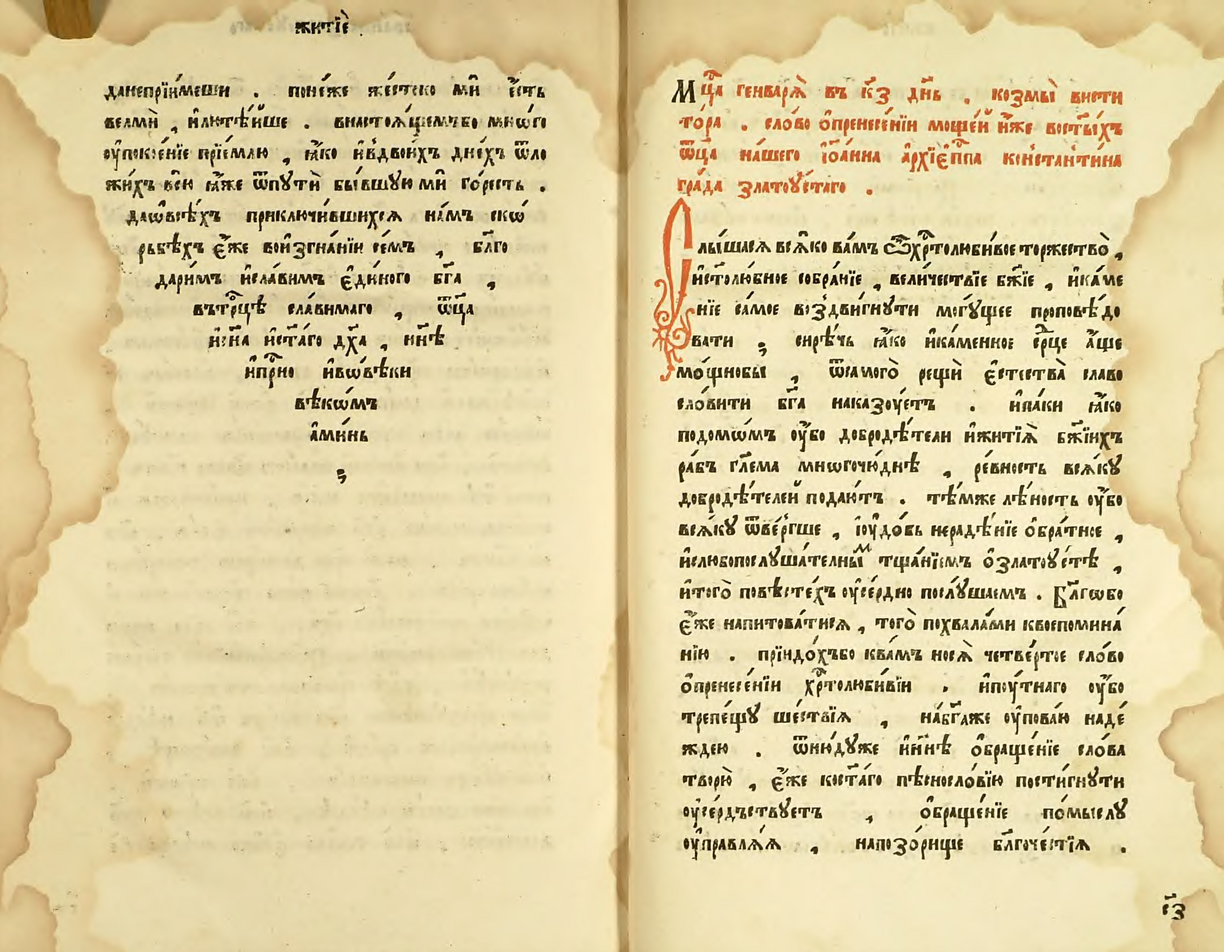 житїѐ
данепрїи́меши . поне́же же́стоко мѝ є҆́сть
велмѝ , и҆лютѣ́йше . внастоѧ́щемъбо мно́го
оу҆покое́нїе прїе́млю , ꙗ҆́ко и҆въдво́ихъ дне́хъ ѿло
жи́хъ всю̀ ꙗ҆́же ѿпутѝ бы́вшую ми го́ресть .
даѡ҆всѣ́хъ приключи́вшихсѧ на́мъ ско́
рбѣхъ є҆́же воизгна́нїи се́мъ , бл҃го
дари́мъ и҆сла́вимъ є҆ди́ного бг҃а ,
вътр҇цѣ сла́вимаго , ѿц҃а
и҆сн҃а и҆ст҃а́го дх҃а , нн҃ѣ
и҆при́но и҆вѡ҆вѣ́ки
вѣкѡ́мъ
а҆ми́нь
Мц҇а генварѧ̀ въ к҃з днь . козмы̀ вести
то́ра . сло́во ѡ҆пренесе́нїи моще́й и҆́же восты́хъ
ѿц҃а на́шего і҆ѡа́нна а҆рхїеп҇па констѧнти́на
гра́да златоу́стаго .
Слы́шасѧ всѧ́ко ва́мъ ѽхр҇толюби́вое торжество̀ ,
и҆ст҃олю́бное собра́нїе , вели́чествїе бж҃їе , и҆ка́ме
нїе са́мое воздви́гнути могу́щее проповѣ́до
вати ; си́рѣчь ꙗ҆́ко и҆ка́менное ср҃це а҆́ще
мо́щнобы , ѿсамого̀ рещѝ є҆стества̀ сла́во
сло́вити бг҃а наказꙋ́етъ . и҆па́ки ꙗ҆́ко
подомѡ́мъ оу҆́бо добродѣ́тели и҆житїѧ̀ бж҃їихъ
ра́бъ гл҃ема многочю́днѣ , ре́вность всѧ́кꙋ
добродѣ́телей подаю́тъ . тѣ́мже лѣ́ность оу҆́бо
всѧ́кꙋ ѿве́ргше , і҆ꙋ҆до́въ нерадѣ́нїе ѡ҆бра́тное ,
и҆слюбопослꙋша́телным тща́нїемъ ѡ҆златоꙋ́стѣ ,
и҆того̀ по́вѣстехъ оу҆се́рдно послꙋ́шаемъ . Бл҃гово
є҆́же напитова́тисѧ , того̀ похвала́ми квоспомина́
нїю . прїидо́хъбо ква́мъ носѧ̀ четве́ртое сло́во
ѡ҆пренесе́нїи хр҇толюби́вїи . и҆поꙋ́тнаго оу҆́бо
трепе́щꙋ ше́ствїѧ , набг҃аже оу҆пова́ю наде́
ждею . ѿню́дꙋже и҆нн҃ѣ ѡ҆браще́нїе сло́ва
творю̀ , є҆́же кост҃а́го пѣсносло́вїю пости́гнꙋти
оу҆се́рдъствꙋетъ , ѡ҆браще́нїе по́мыслꙋ
оу҆правлѧ́ѧ , напозо́рище бл҃гоче́стїѧ .
с҃з